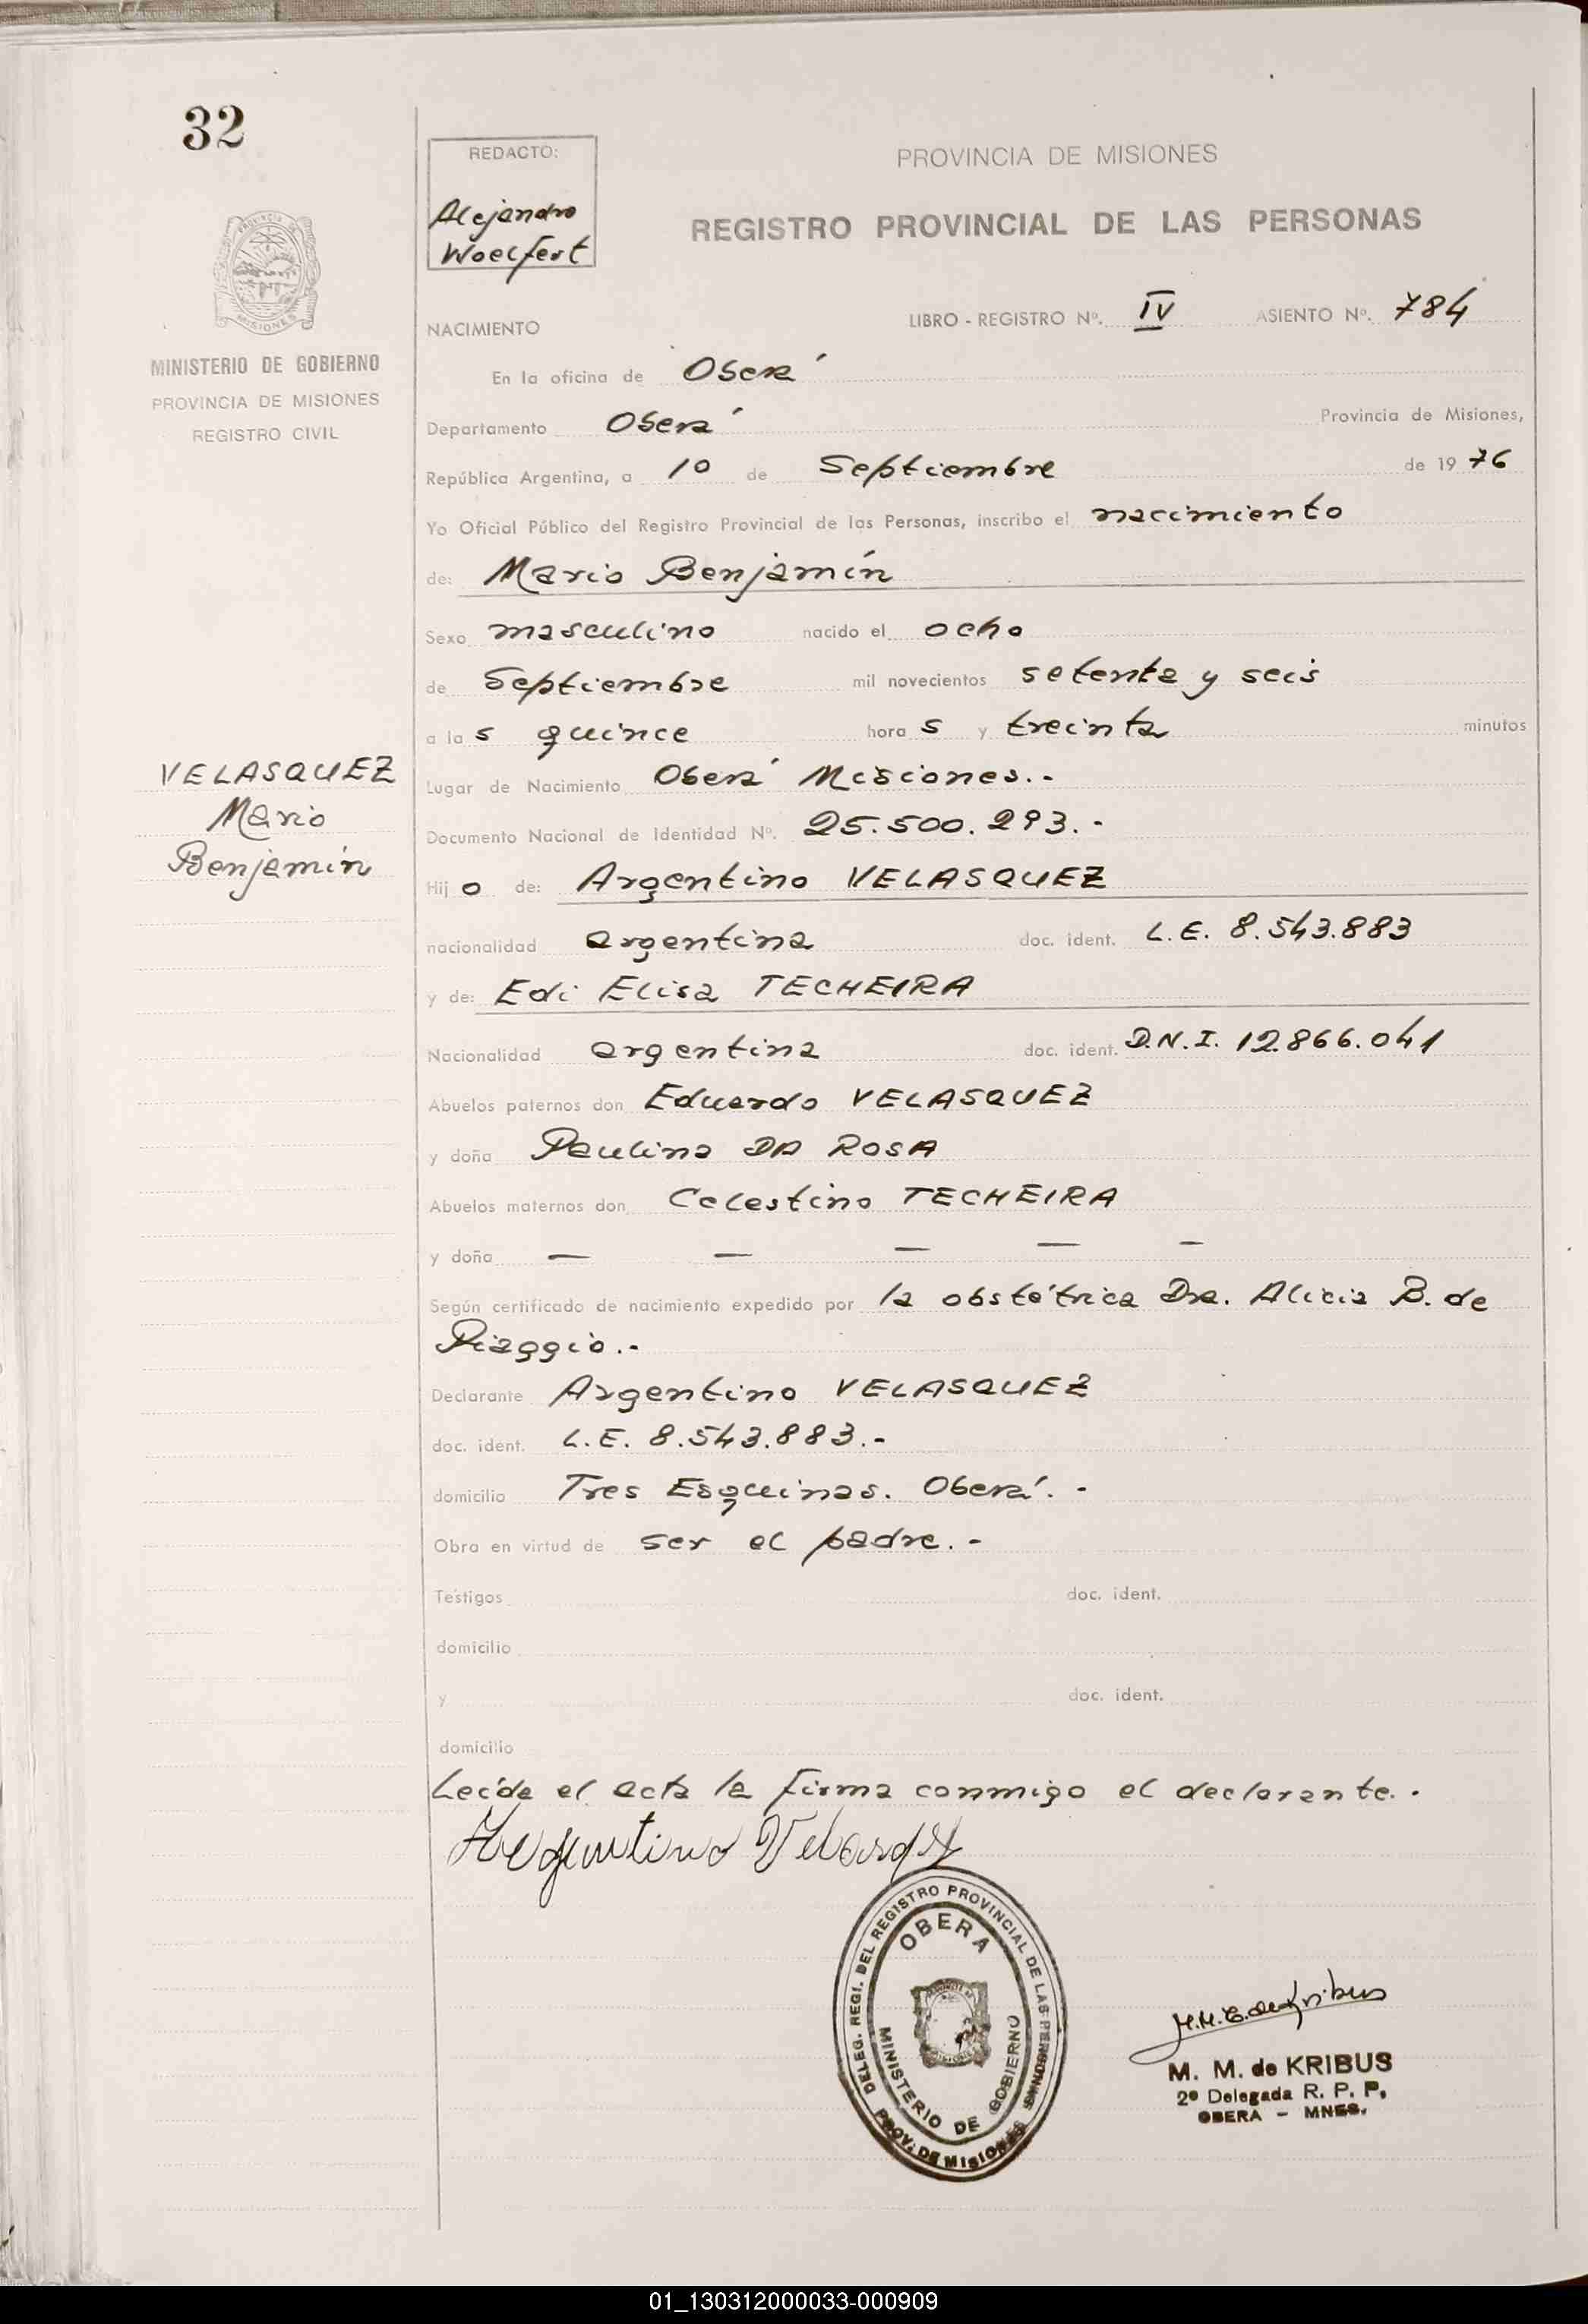 32
REDACTO:
Alejandro
Woelfert
PROVINCIA DE MISIONES
REGISTRO PROVINCIAL DE LAS PERSONAS
MISIONES
MINISTERIO DE GOBIERNO
PROVINCIA DE MISIONES
REGISTRO CIVIL
NACIMIENTO
LIBRO - REGISTRO Nº. IV ASIENTO Nº. 784
En la oficina de Oberá
Departamento Oberá Provincia de Misiones,
República Argentina, a 10 de Septiembre de 1976
Yo Oficial Público del Registro Provincial de las Personas, inscribo el nacimiento
de: Mario Benjamín
Sexo masculino nacido el ocho
de Septiembre mil novecientos setenta y seis
a las quince horas y treinta minutos
VELASQUEZ
Mario
Benjamín
Lugar de Nacimiento Oberá Misiones.-
Documento Nacional de Identidad Nº. 25.500.293.-
Hijo de: Argentino VELASQUEZ
nacionalidad argentina doc. ident. L.E. 8.543.883
y de: Edi Elisa TECHEIRA
Nacionalidad argentina doc. ident. D.N.I. 12.866.041
Abuelos paternos don Eduardo VELASQUEZ
y doña Paulina DA ROSA
Abuelos maternos don Celestino TECHEIRA
y doña — — — — —
Según certificado de nacimiento expedido por la obstétrica Dra. Alicia B. de
Piaggio.-
Declarante Argentino VELASQUEZ
doc. ident. L.E. 8.543.883.-
domicilio Tres Esquinas. Oberá.-
Obra en virtud de ser el padre.-
Testigos doc. ident.
domicilio
y doc. ident.
domicilio
Leída el acta la firma conmigo el declarante.-
Argentino Velasqz
DELEG. REGI. DEL REGISTRO PROVINCIAL DE LAS PERSONAS
PROV. DE MISIONES
OBERA
MINISTERIO DE GOBIERNO
M. M. de KRIBUS
2º Delegada R. P. P.
OBERA - MNES.
01_130312000033-000909